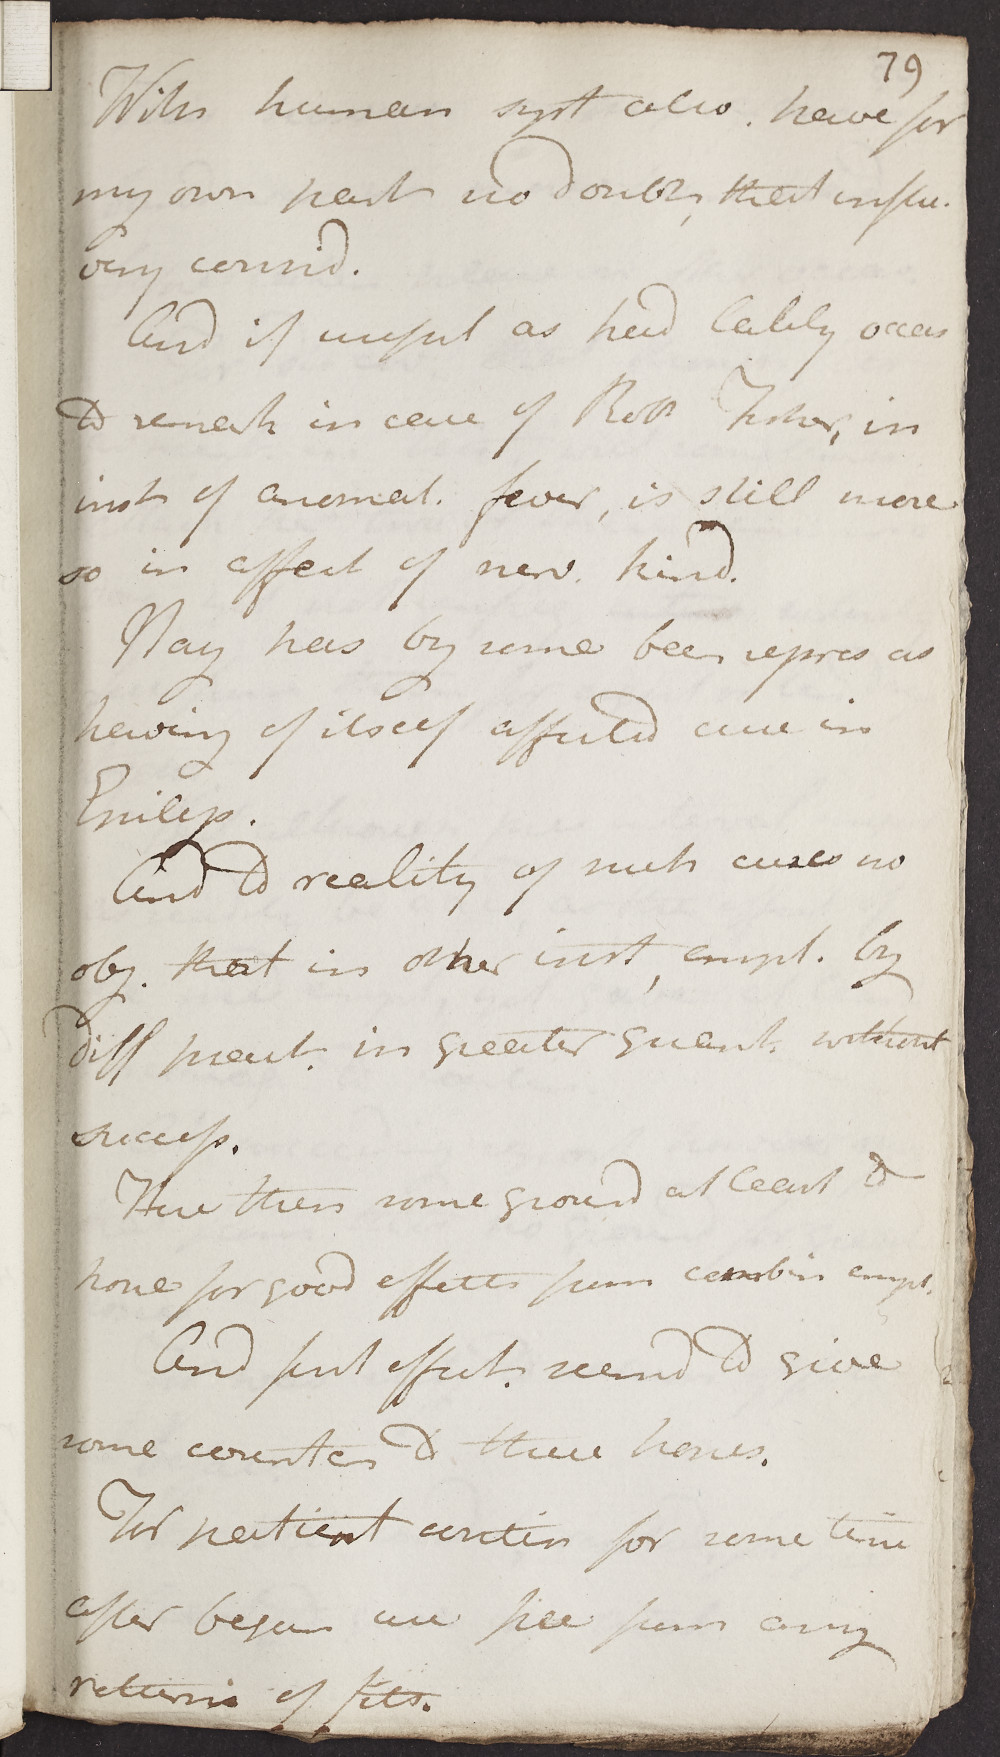 79
With human syst also. have for
my own part no doubt, that influ.
very consid.
And if useful as had lately occas
to remark in case of Robt Fisher, in
inst of anomal. fever, is still more
so in affect of nerv. kind.
Nay has by some been repres as
having of itself affected cure in
Epileps.
And to reality of such cures no
obj. that in other inst, empl. by
diff pract. in greater quant. without
success.
Here then some ground at least to
hope for good effects from combin empl.
And first effect. seemd to give
some countan to these hopes.
For patient contin for some time
after began use free from any
returns of fits.